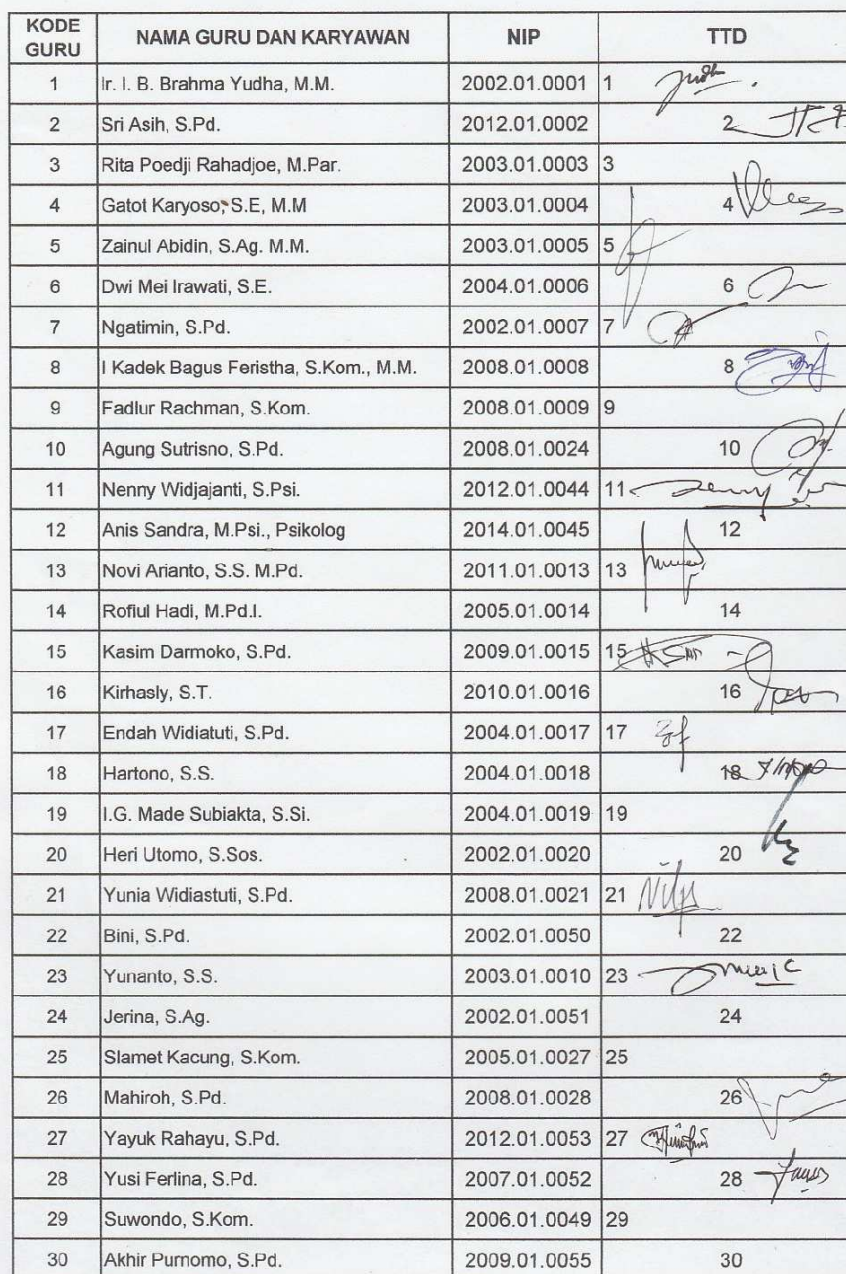 KODE GURU NAMA GURU DAN KARYAWAN NIP TTD
1 Ir. I. B. Brahma Yudha, M.M. 2002.01.0001 1
2 Sri Asih, S.Pd. 2012.01.0002 2
3 Rita Poedji Rahadjoe, M.Par. 2003.01.0003 3
4 Gatot Karyoso, S.E, M.M 2003.01.0004 4
5 Zainul Abidin, S.Ag. M.M. 2003.01.0005 5
6 Dwi Mei Irawati, S.E. 2004.01.0006 6
7 Ngatimin, S.Pd. 2002.01.0007 7
8 I Kadek Bagus Feristha, S.Kom., M.M. 2008.01.0008 8
9 Fadlur Rachman, S.Kom. 2008.01.0009 9
10 Agung Sutrisno, S.Pd. 2008.01.0024 10
11 Nenny Widjajanti, S.Psi. 2012.01.0044 11
12 Anis Sandra, M.Psi., Psikolog 2014.01.0045 12
13 Novi Arianto, S.S. M.Pd. 2011.01.0013 13
14 Rofiul Hadi, M.Pd.I. 2005.01.0014 14
15 Kasim Darmoko, S.Pd. 2009.01.0015 15
16 Kirhasly, S.T. 2010.01.0016 16
17 Endah Widiatuti, S.Pd. 2004.01.0017 17
18 Hartono, S.S. 2004.01.0018 18
19 I.G. Made Subiakta, S.Si. 2004.01.0019 19
20 Heri Utomo, S.Sos. 2002.01.0020 20
21 Yunia Widiastuti, S.Pd. 2008.01.0021 21
22 Bini, S.Pd. 2002.01.0050 22
23 Yunanto, S.S. 2003.01.0010 23
24 Jerina, S.Ag. 2002.01.0051 24
25 Slamet Kacung, S.Kom. 2005.01.0027 25
26 Mahiroh, S.Pd. 2008.01.0028 26
27 Yayuk Rahayu, S.Pd. 2012.01.0053 27
28 Yusi Ferlina, S.Pd. 2007.01.0052 28
29 Suwondo, S.Kom. 2006.01.0049 29
30 Akhir Purnomo, S.Pd. 2009.01.0055 30